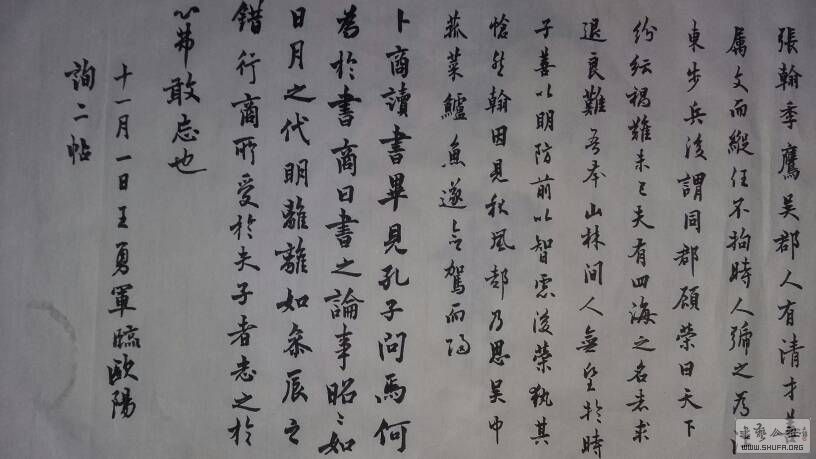 張翰季鷹吳郡人有清才善
属文而縱任不拘時人號之為
東步兵後謂同郡顧榮曰天下
紛紜禍難未已夫有四海之名者求
退良難吾本山林間人無望於時
子善以明防前以智慮後榮執其
愴然翰因見秋風起乃思吳中
菰菜鱸魚遂命駕而歸
卜商讀書畢見孔子問焉何
為於書商曰書之論事昭〻如
日月之代明離離如參辰之
錯行商所受於夫子者志之於
心弗敢忘也
十一月一日王勇軍臨歐陽
詢二帖
WWW.SHUFA.ORG